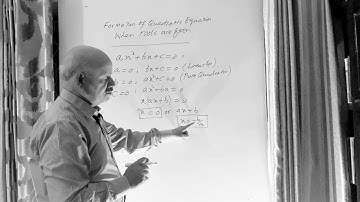 Formation of Quadratic Equation
when roots are given
ax²+bx+c=0;
a=0; bx+c=0 (Linear Eq)
b=0; ax²+c=0 (Pure Quadratic)
c=0; ax²+bx=0
x(ax+b)=0
x=0 or ax+b
x=-b/a